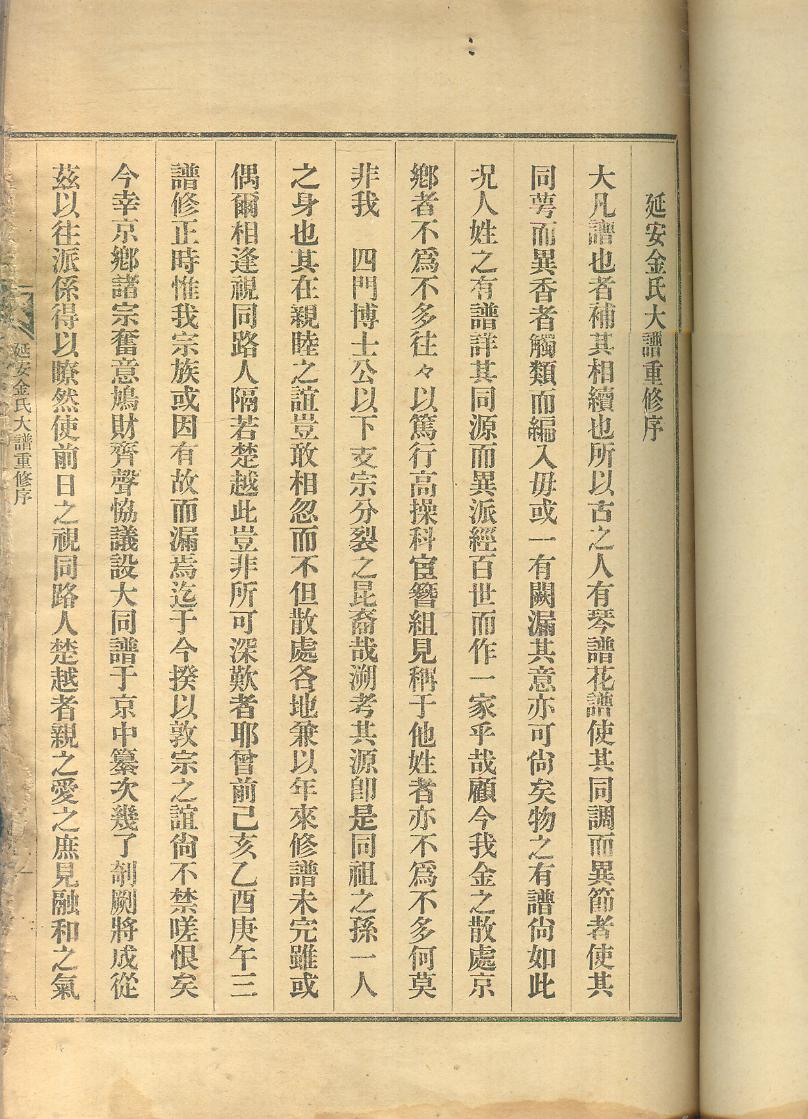 延安金氏大譜重修序
大凡譜也者補其相續也所以古之人有琴譜花譜使其同調而異節者使其
同萼而異香者觸類而編入毋或一有闕漏其意亦可尙矣物之有譜尙如此
况人姓之有譜詳其同源而異派經百世而作一家乎哉顧今我金之散處京
鄕者不爲不多往々以篤行高操科宦簪組見稱于他姓者亦不爲不多何莫
非我 四門博士公以下支宗分裂之昆裔哉溯考其源卽是同祖之孫一人
之身也其在親睦之誼豈敢相忽而不但散處各地兼以年來修譜未完雖或
偶爾相逢視同路人隔若楚越此豈非所可深歎者耶曾前己亥乙酉庚午三
譜修正時惟我宗族或因有故而漏焉迄于今揆以敦宗之誼尙不禁嗟恨矣
今幸京鄕諸宗奮意鳩財齊聲恊議設大同譜于京中纂次幾了剞劂將成從
玆以往派係得以瞭然使前日之視同路人楚越者親之愛之庶見融和之氣
延安金氏大譜重修序